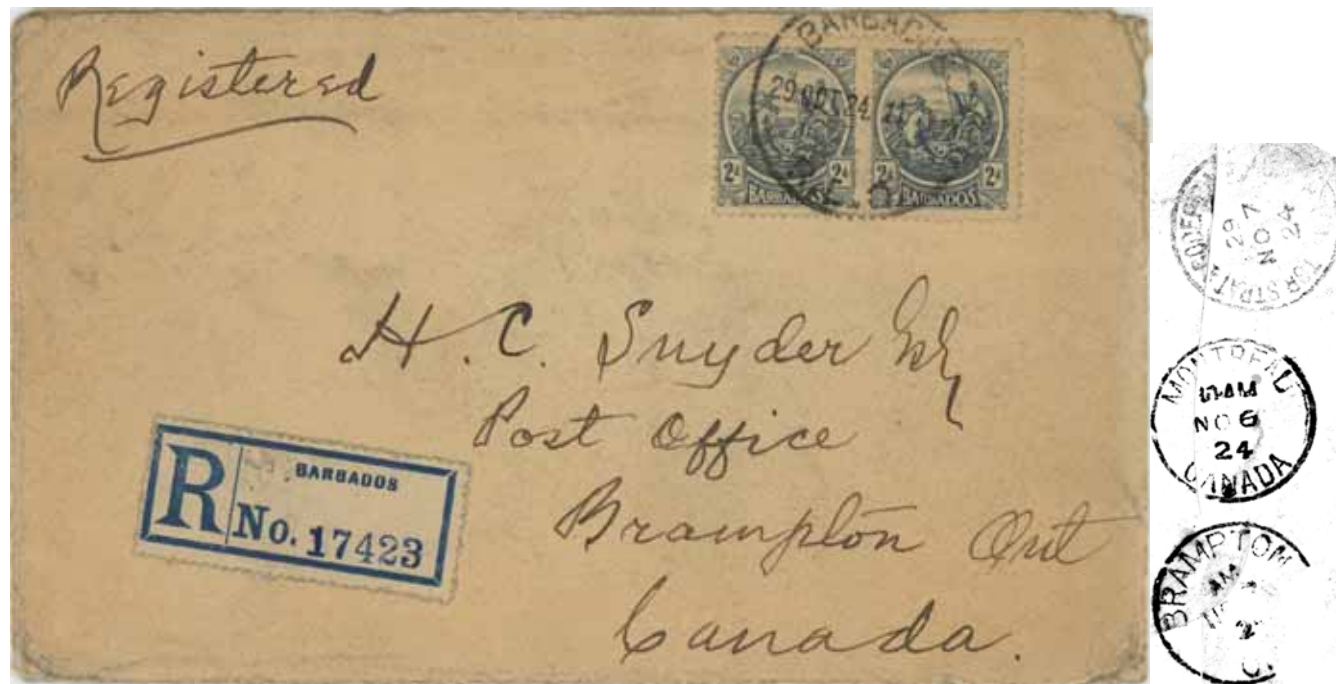 Registered
BARBAD
29 OCT 24 11
2d 2d
BARBADOS
2d 2d
BARBADOS
H. C. Snyder Esq
Post Office
Brampton Ont
Canada.
R
BARBADOS
No. 17423
29
NO 7
24
TOR STRAT
MONTREAL
AM
NO 6
24
CANADA
BRAMPTON
AM